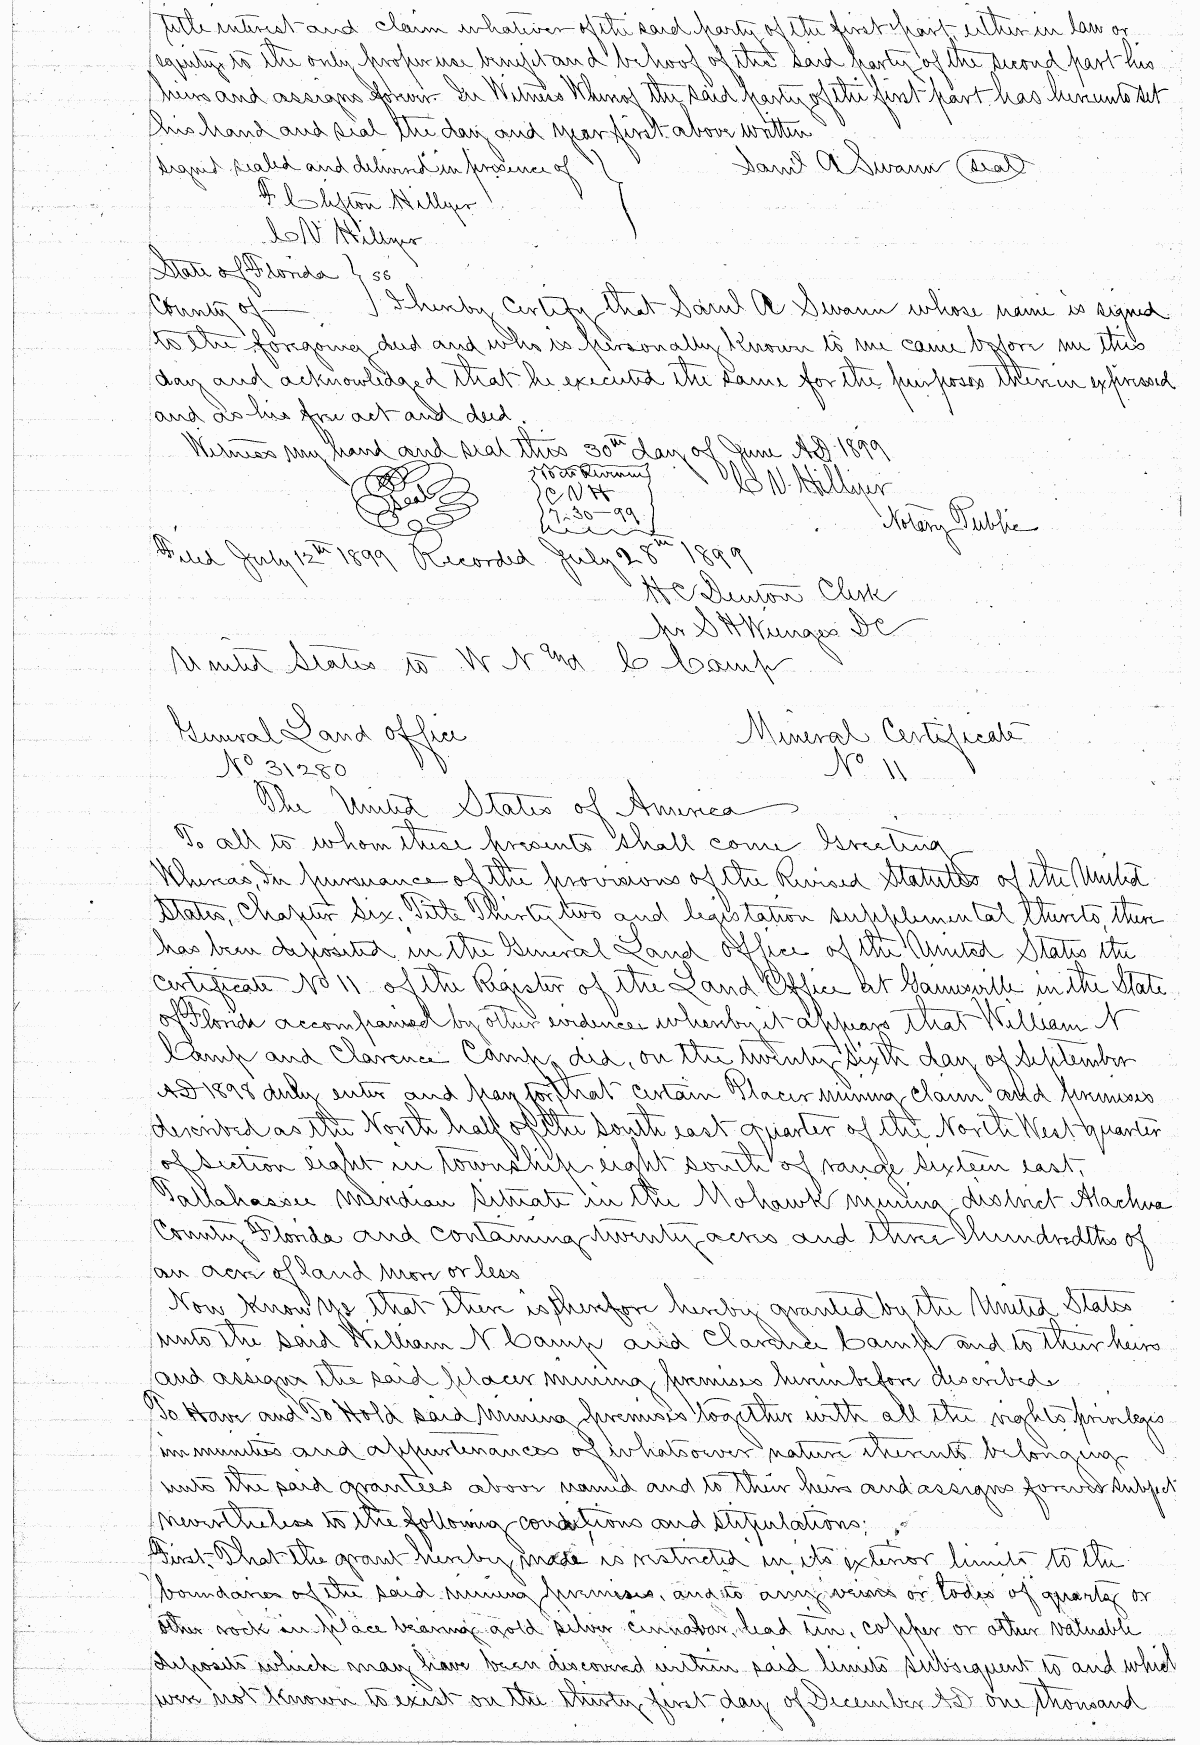 title interest and claim whatever of the said party of the first part either in law or
equity to the only proper use benefit and behoof of the said party of the second part his
heirs and assigns forever. In Witness Whereof the said party of the first part has hereunto set
his hand and seal the day and year first above written
signed sealed and delivered in presence of } Saml A Swann (seal)
F Clifton Hillyer
C V Hillyer
State of Florida } ss
County of — } I hereby certify that Saml A Swann whose name is signed
to the foregoing deed and who is personally known to me came before me this
day and acknowledged that he executed the same for the purposes therein expressed
and as his free act and deed.
Witness my hand and seal this 30th day of June AD 1899
Seal C V H C V Hillyer
7-30-99 Notary Public
Filed July 12th 1899 Recorded July 28th 1899
H C Denton Clerk
pr S H Wienges DC
United States to W N and C Camp
General Land Office Mineral Certificate
No 31280 No 11
The United States of America
To all to whom these presents shall come Greeting
Whereas, In pursuance of the provisions of the Revised Statutes of the United
States, Chapter Six, Title Thirty two and legistation supplemental thereto, there
has been deposited in the General Land Office of the United States the
certificate No 11 of the Register of the Land Office at Gainesville in the State
of Florida accompanied by other evidence whereby it appears that William N
Camp and Clarence Camp, did, on the twenty sixth day of September
AD 1898 duly enter and pay for, that certain Placer mining claim and premises
described as the North half of the South east quarter of the North West quarter
of section eight in township eight south of range sixteen east,
Tallahassee Meridian situate in the Mohawk mining district Alachua
County Florida and containing twenty acres and three hundredths of
an acre of land more or less
Now Know Ye, that there is, therefore hereby granted by the United States
unto the said William N Camp and Clarence Camp and to their heirs
and assigns the said placer mining premises hereinbefore described
To Have and To Hold said Mining premises together with all the rights privileges
immunities and appurtenances of whatsoever nature thereunto belonging
unto the said grantees above named and to their heirs and assigns forever subject
nevertheless to the following conditions and stipulations:
First. That the grant hereby made is restricted in its exterior limits to the
boundaries of the said mining premises, and to any veins or lodes of quartz or
other rock in place bearing gold silver cinnabar, lead tin, copper or other valuable
deposits which may have been discovered within said limits subsequent to and which
were not known to exist on the thirty first day of December AD one thousand